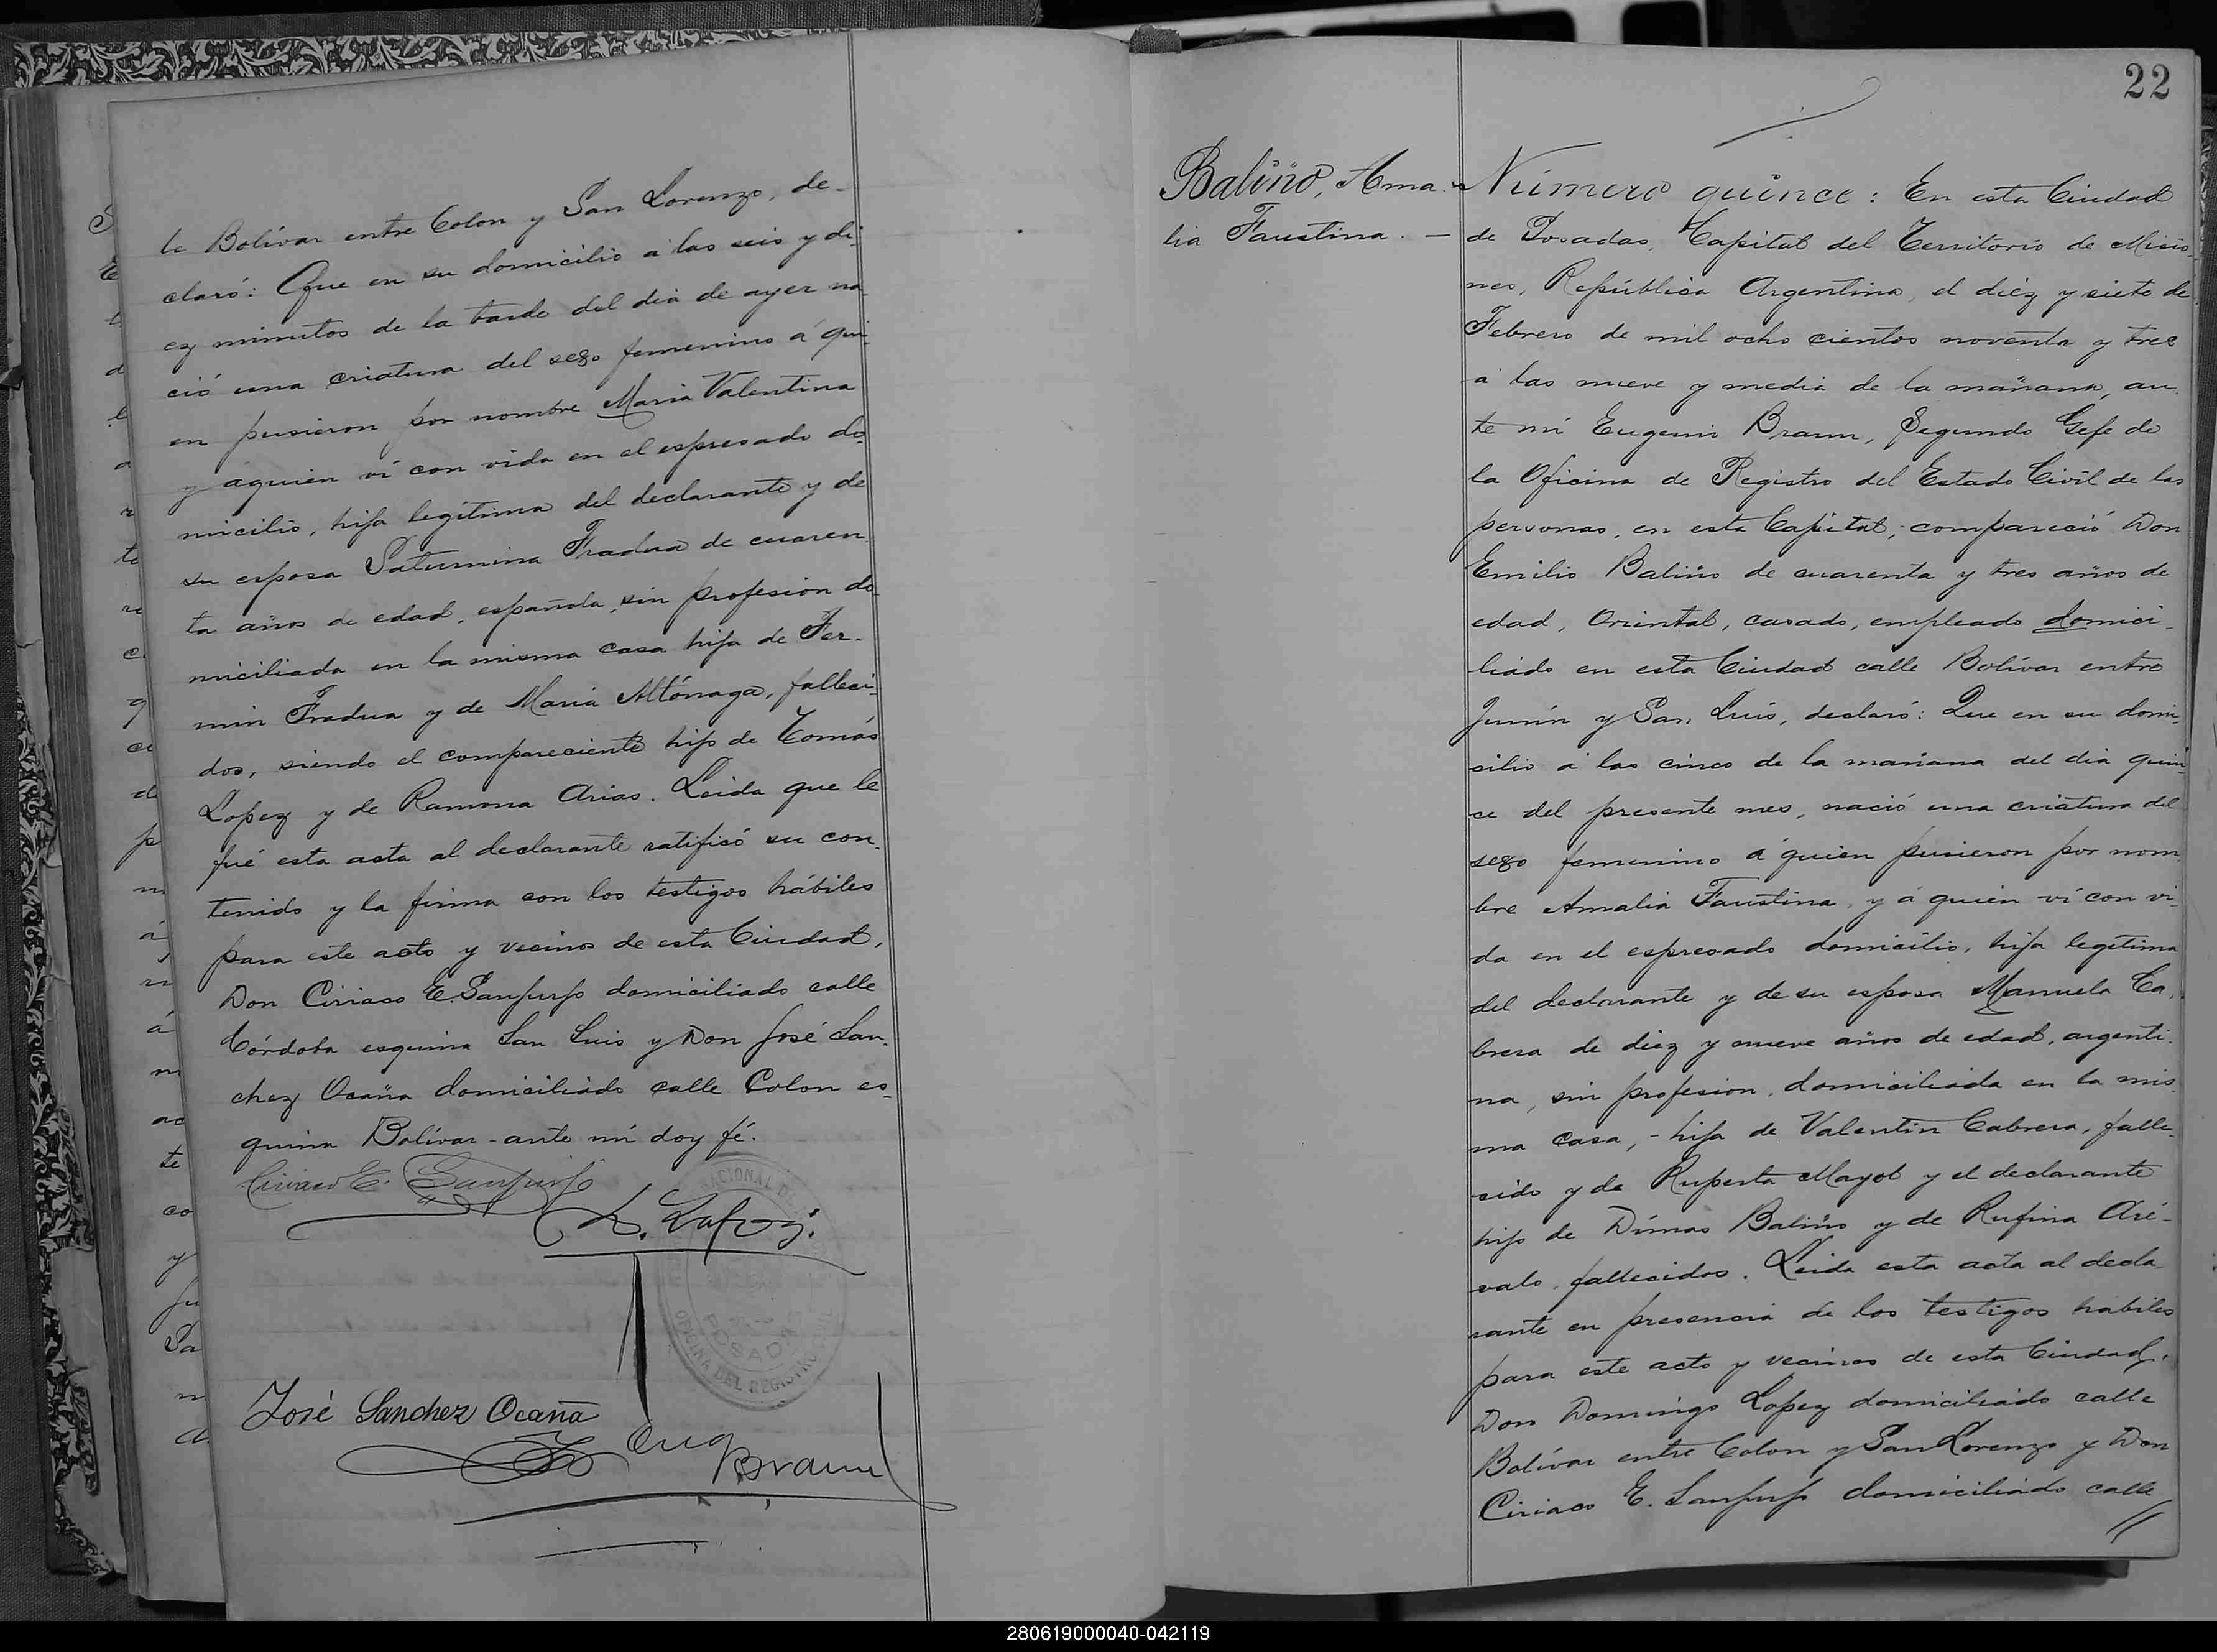 le Bolívar entre Colon y San Lorenzo, de-
claró: Que en su domicilio á las seis y di-
ez minutos de la tarde del dia de ayer na-
ció una criatura del sexo femenino á qui-
en pusieron por nombre Maria Valentina
y aquien ví con vida en el espresado do-
micilio, hija legítima del declarante y de
su esposa Saturnina Fradua de cuaren-
ta años de edad, española, sin profesion do-
miciliada en la misma casa hija de Fer-
min Fradua y de Maria Altónaga, falleci-
dos, siendo el compareciente hijo de Tomás
Lopez y de Ramona Arias. Leida que le
fué esta acta al declarante ratificó su con-
tenido y la firma con los testigos hábiles
para este acto y vecinos de esta Ciudad,
Don Ciriaco E. Sanjurjo domiciliado calle
Córdoba esquina San Luis y Don José San-
chez Ocaña domiciliado calle Colon es-
quina Bolívar - ante mí doy fé.
Ciriaco E. Sanjurjo
L. Lopez.
José Sanchez Ocaña
Eug Braun
POSADAS
OFICINA DEL REGISTRO
22
Baliño, Ama-
lia Faustina. —
Número quince: En esta Ciudad
de Posadas, Capital del Territorio de Misio-
nes, República Argentina, el diez y siete de
Febrero de mil ocho cientos noventa y tres
á las nueve y media de la mañana, an-
te mí Eugenio Braun, Segundo Gefe de
la Oficina de Registro del Estado Civil de las
personas, en esta Capital; compareció Don
Emilio Baliño de cuarenta y tres años de
edad, Oriental, casado, empleado domici-
liado en esta Ciudad calle Bolívar entre
Junín y San Luis, declaró: Que en su domi-
cilio á las cinco de la mañana del dia quin-
ce del presente mes, nació una criatura del
sexo femenino á quien pusieron por nom-
bre Amalia Faustina, y á quien ví con vi-
da en el espresado domicilio, hija legítima
del declarante y de su esposa Manuela Ca-
brera de diez y nueve años de edad, argenti-
na, sin profesion, domiciliada en la mis-
ma casa, - hija de Valentin Cabrera, falle-
cido y de Ruperta Mayol y el declarante
hijo de Dímas Baliño y de Rufina Aré-
valo, fallecidos. Leida esta acta al decla-
rante en presencia de los testigos hábiles
para este acto y vecinos de esta Ciudad,
Don Domingo Lopez domiciliado calle
Bolívar entre Colon y San Lorenzo y Don
Ciriaco E. Sanjurjo domiciliado calle
280619000040-042119